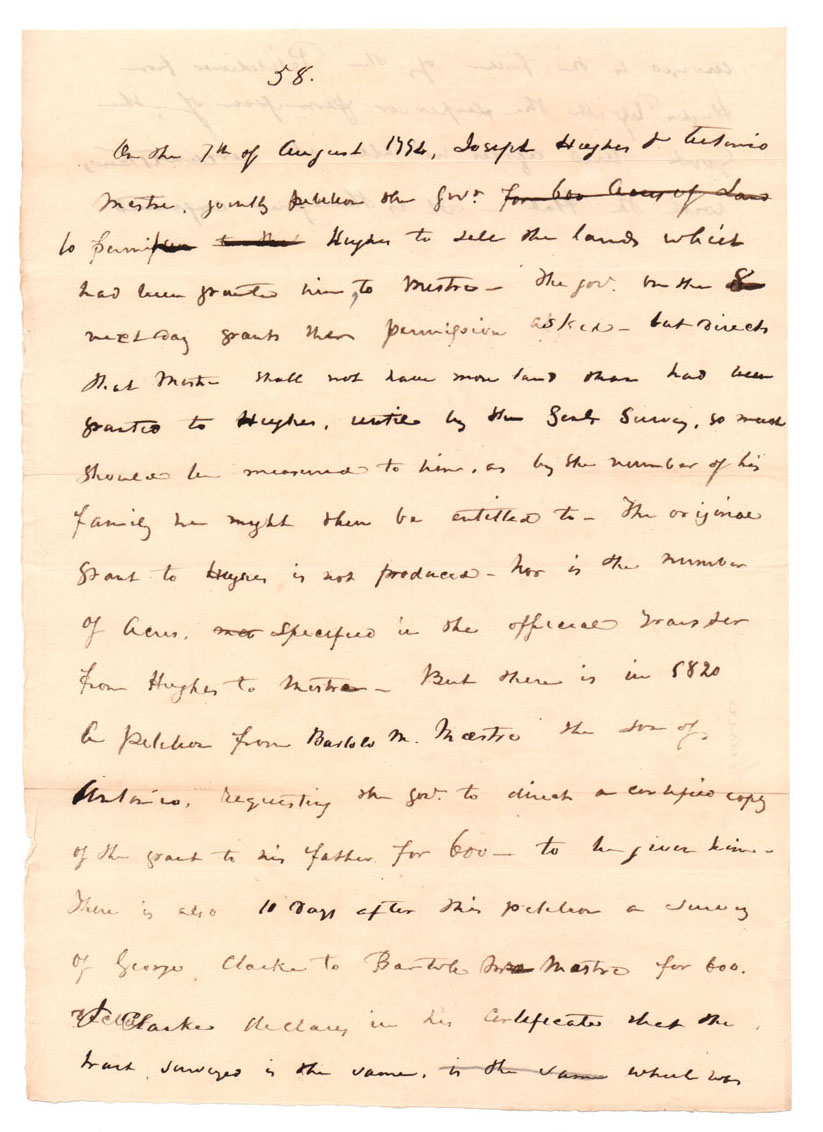 58.
On the 7th of August 1792, Joseph Hughes & Antonio
Mestre, jointly petition the govr. for 600 Acres of Land
to permit Hughes to sell the lands which
had been granted him, to Mestre - The gov. on the 8
next day grants them permission asked - but directs
that Mestre shall not have more land than had been
granted to Hughes, until by the Genl. Survey, so much
should be measured to him, as by the number of his
family he might then be entitled to - The original
grant to Hughes is not produced - nor is the number
of Acres, not specified in the official transfer
from Hughes to Mestre - But there is in 1820
a petition from Bartolo M. Maestre the son of
Antonio, requesting the gov. to direct a certified copy
of the grant to his father for 600 - to be given him -
There is also 10 Days after this petition a survey
of George Clarke to Bartolo Mastre for 600.
Clarke declares in his certificate that the
tract surveyed is the same, is the same which was